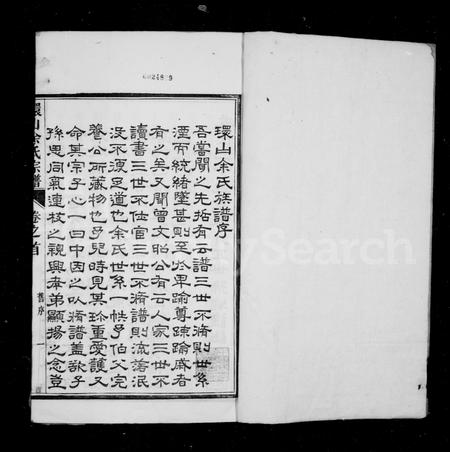 環山余氏族譜序
吾嘗聞之先哲有云譜三世不脩則世系
湮而統緒墜甚則至於卑踰尊疎踰戚者
有之矣又聞曾文昭公有云人家三世不
讀書三世不仕宦三世不脩譜則流落泯
沒不復足道也余氏世系一帙予伯父完
養公所藏物也予兒時見其珍重愛護又
命其宗子心一曰中因之以脩譜蓋欲子
孫思同氣連枝之親興孝弟顯揚之念豈
環山余氏宗譜
卷之首
舊序
一